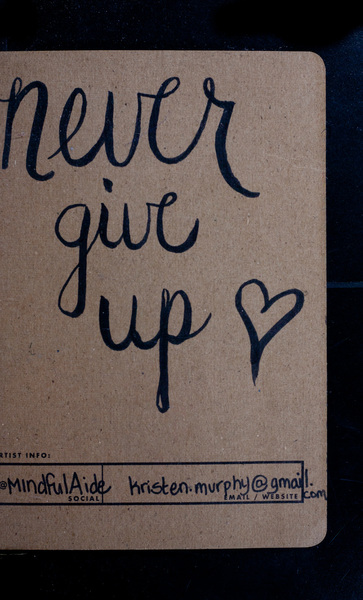 never
give
up
ARTIST INFO:
@MindfulAide kristen.murphy@gmail.com
SOCIAL EMAIL / WEBSITE